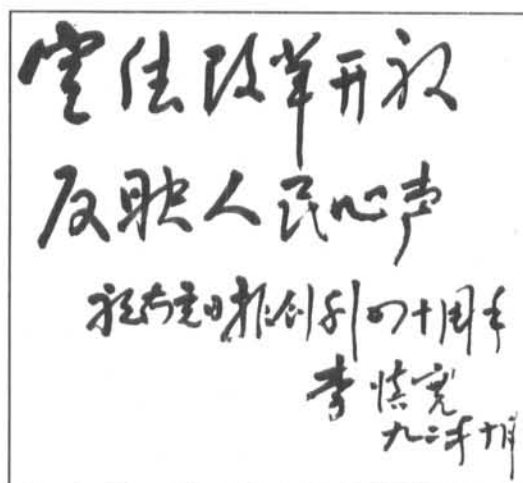 宣传改革开放
反映人民心声
祝南充日报创刊四十周年
李慎宽
九二年十月